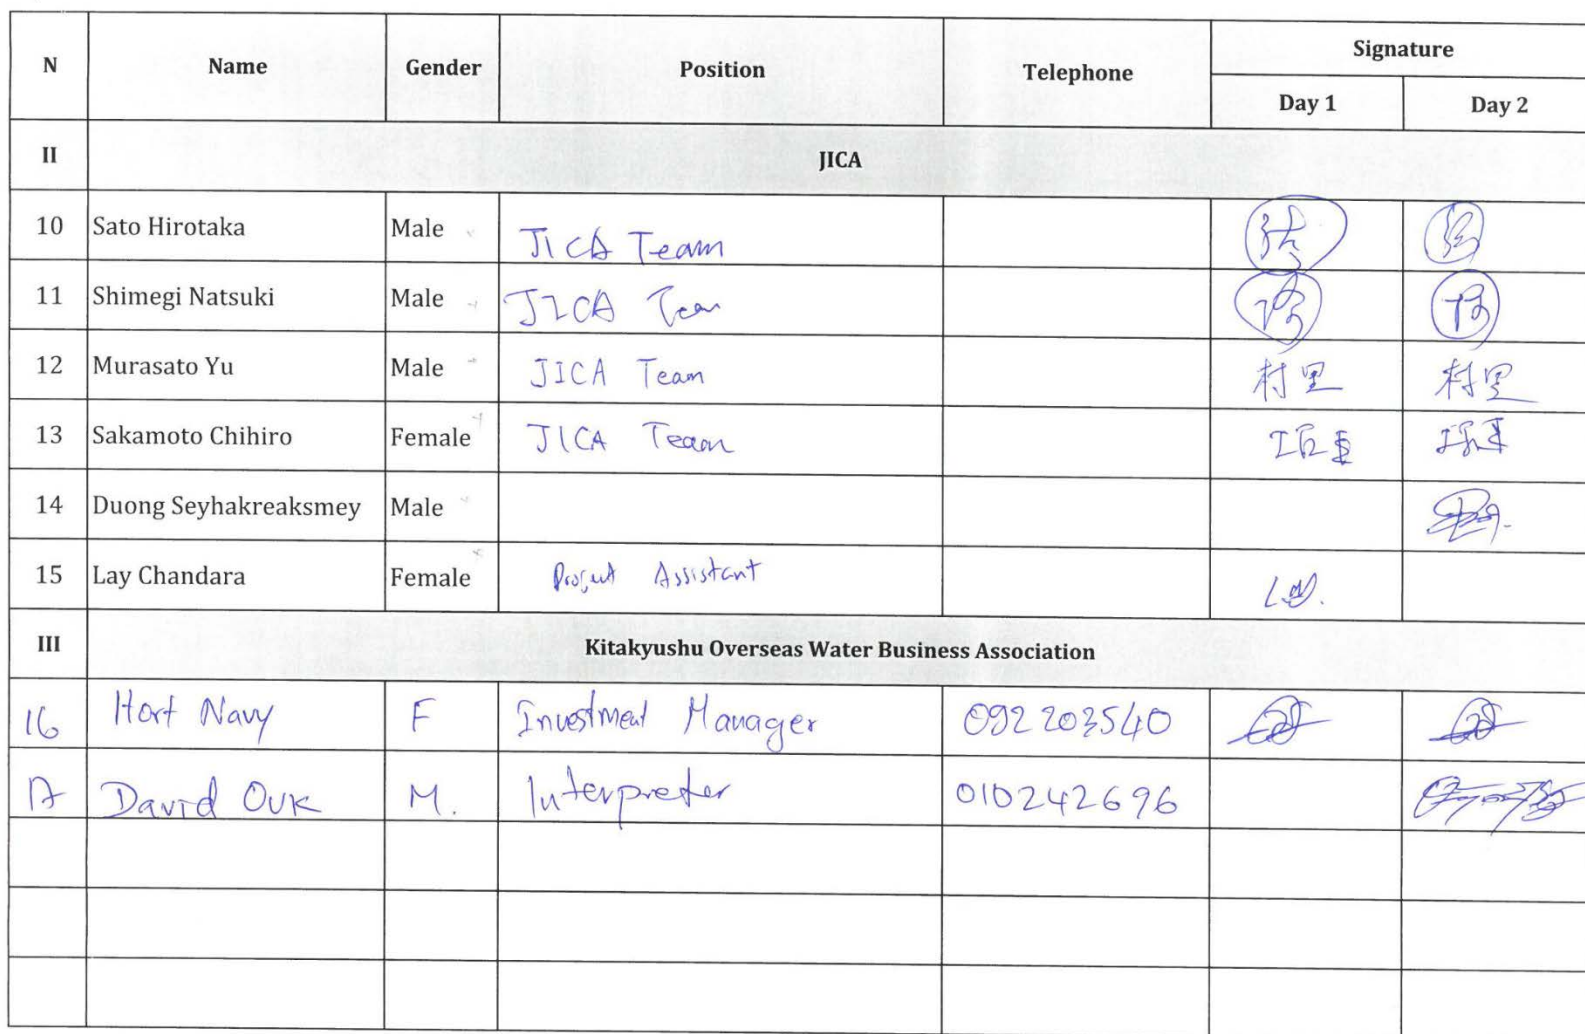 N Name Gender Position Telephone Signature
Day 1 Day 2
II JICA
10 Sato Hirotaka Male JICA Team
11 Shimegi Natsuki Male JICA Team
12 Murasato Yu Male JICA Team 村里 村里
13 Sakamoto Chihiro Female JICA Team
14 Duong Seyhakreaksmey Male
15 Lay Chandara Female Project Assistant
III Kitakyushu Overseas Water Business Association
16 Hort Navy F Investment Manager 092 203540
17 David Ouk M. Interpreter 010242696